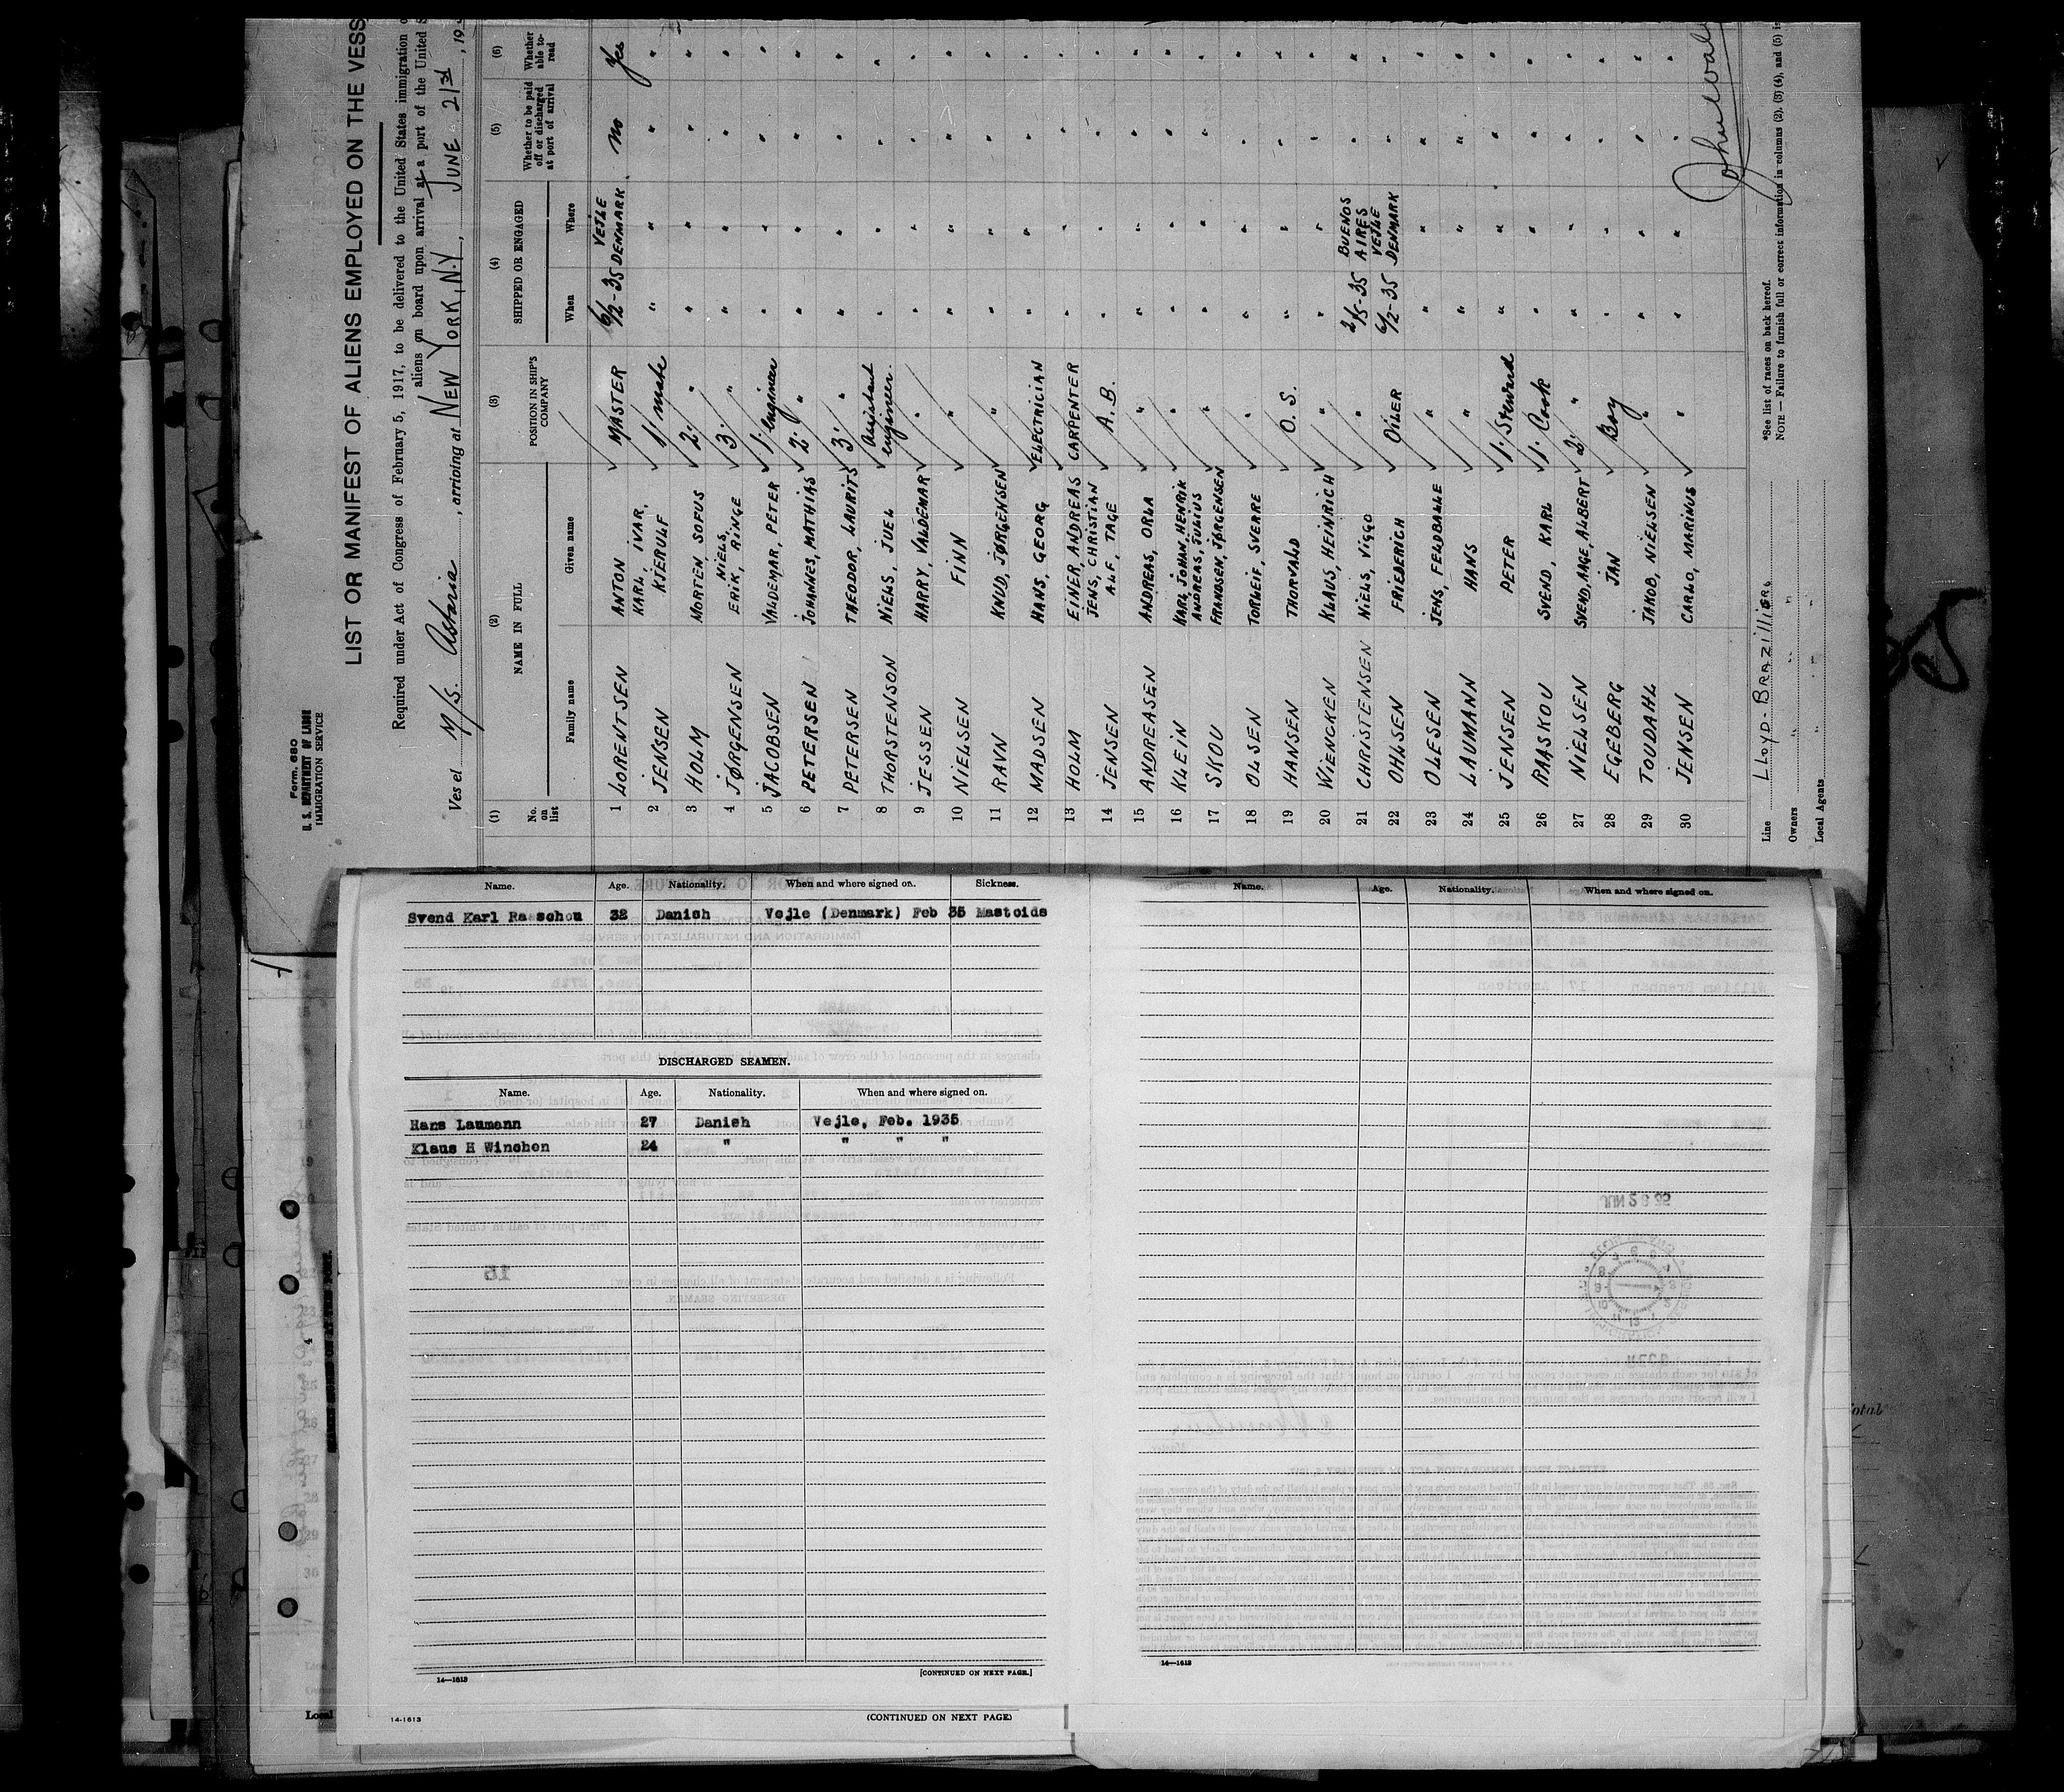 Form 680
U. S. DEPARTMENT OF LABOR
IMMIGRATION SERVICE
LIST OR MANIFEST OF ALIENS EMPLOYED ON THE VESS
Required under Act of Congress of February 5, 1917, to be delivered to the United States immigration
aliens on board upon arrival at a port of the United
Vessel M/S. Astoria, arriving at NEW YORK, N.Y., JUNE 21st, 19
(1) (2) (3) (4) (5) (6)
No. on list NAME IN FULL POSITION IN SHIP'S COMPANY SHIPPED OR ENGAGED Whether to be paid off or discharged at port of arrival Whether able to read
Family name Given name When Where
1 LORENTSEN ANTON MASTER 6/2-35 VEJLE DENMARK no Yes
2 JENSEN KARL, IVAR, KJERULF 1' mate " " " "
3 HOLM MORTEN, SOFUS 2. " " " " "
4 JØRGENSEN NIELS, ERIK, RINGE 3. " " " " "
5 JACOBSEN VALDEMAR, PETER 1. engineer " " " "
6 PETERSEN JOHANNES, MATHIAS 2. " " " " "
7 PETERSEN THEODOR, LAURITS 3. " " " " "
8 THORSTENSON NIELS, JUEL assistant engineer. " " " "
9 JESSEN HARRY, VALDEMAR " " " " "
10 NIELSEN FINN " " " " "
11 RAVN KNUD, JØRGENSEN " " " " "
12 MADSEN HANS, GEORG ELECTRICIAN " " " "
13 HOLM EINER, ANDREAS CARPENTER " " " "
14 JENSEN JENS, CHRISTIAN ALF, TAGE A.B. " " " "
15 ANDREASEN ANDREAS, ORLA " " " " "
16 KLEIN KARL, JOHAN, HENRIK " " " " "
17 SKOU ANDREAS, JULIUS FRANDSEN, JØRGENSEN " " " " "
18 OLSEN TORLEIF, SVERRE " " " " "
19 HANSEN THORVALD O.S. " " " "
20 WIENCKEN KLAUS, HEINRICH " " " " "
21 CHRISTENSEN NIELS, VIGGO " 2/5-35 BUENOS AIRES " "
22 OHLSEN FRIEDERICH OILER 6/2-35 VEJLE DENMARK " "
23 OLESEN JENS, FELDBALLE " " " " "
24 LAUMANN HANS " " " " "
25 JENSEN PETER 1. Steward " " " "
26 RAASKOU SVEND, KARL 1. Cook " " " "
27 NIELSEN SVEND, AAGE, ALBERT 2. " " " " "
28 EGEBERG JAN Boy " " " "
29 TOUDAHL JAKOB, NIELSEN " " " " "
30 JENSEN CARLO, MARINUS " " " " "
Line LLOYD-BRAZILLIER
Owners " "
Local Agents " "
*See list of races on back hereof.
NOTE — Failure to furnish full or correct information in columns (2), (3) (4), and (5) is
Name. Age. Nationality. When and where signed on. Sickness.
Svend Karl Raaschou 32 Danish Vejle (Denmark) Feb 35 Mastoids
DISCHARGED SEAMEN.
Name. Age. Nationality. When and where signed on.
Hans Laumann 27 Danish Vejle, Feb. 1935
Klaus H Winchen 24 " " " "
14—1613 [CONTINUED ON NEXT PAGE.]
14-1613 (CONTINUED ON NEXT PAGE)
Local
Name. Age. Nationality. When and where signed on.
14—1613